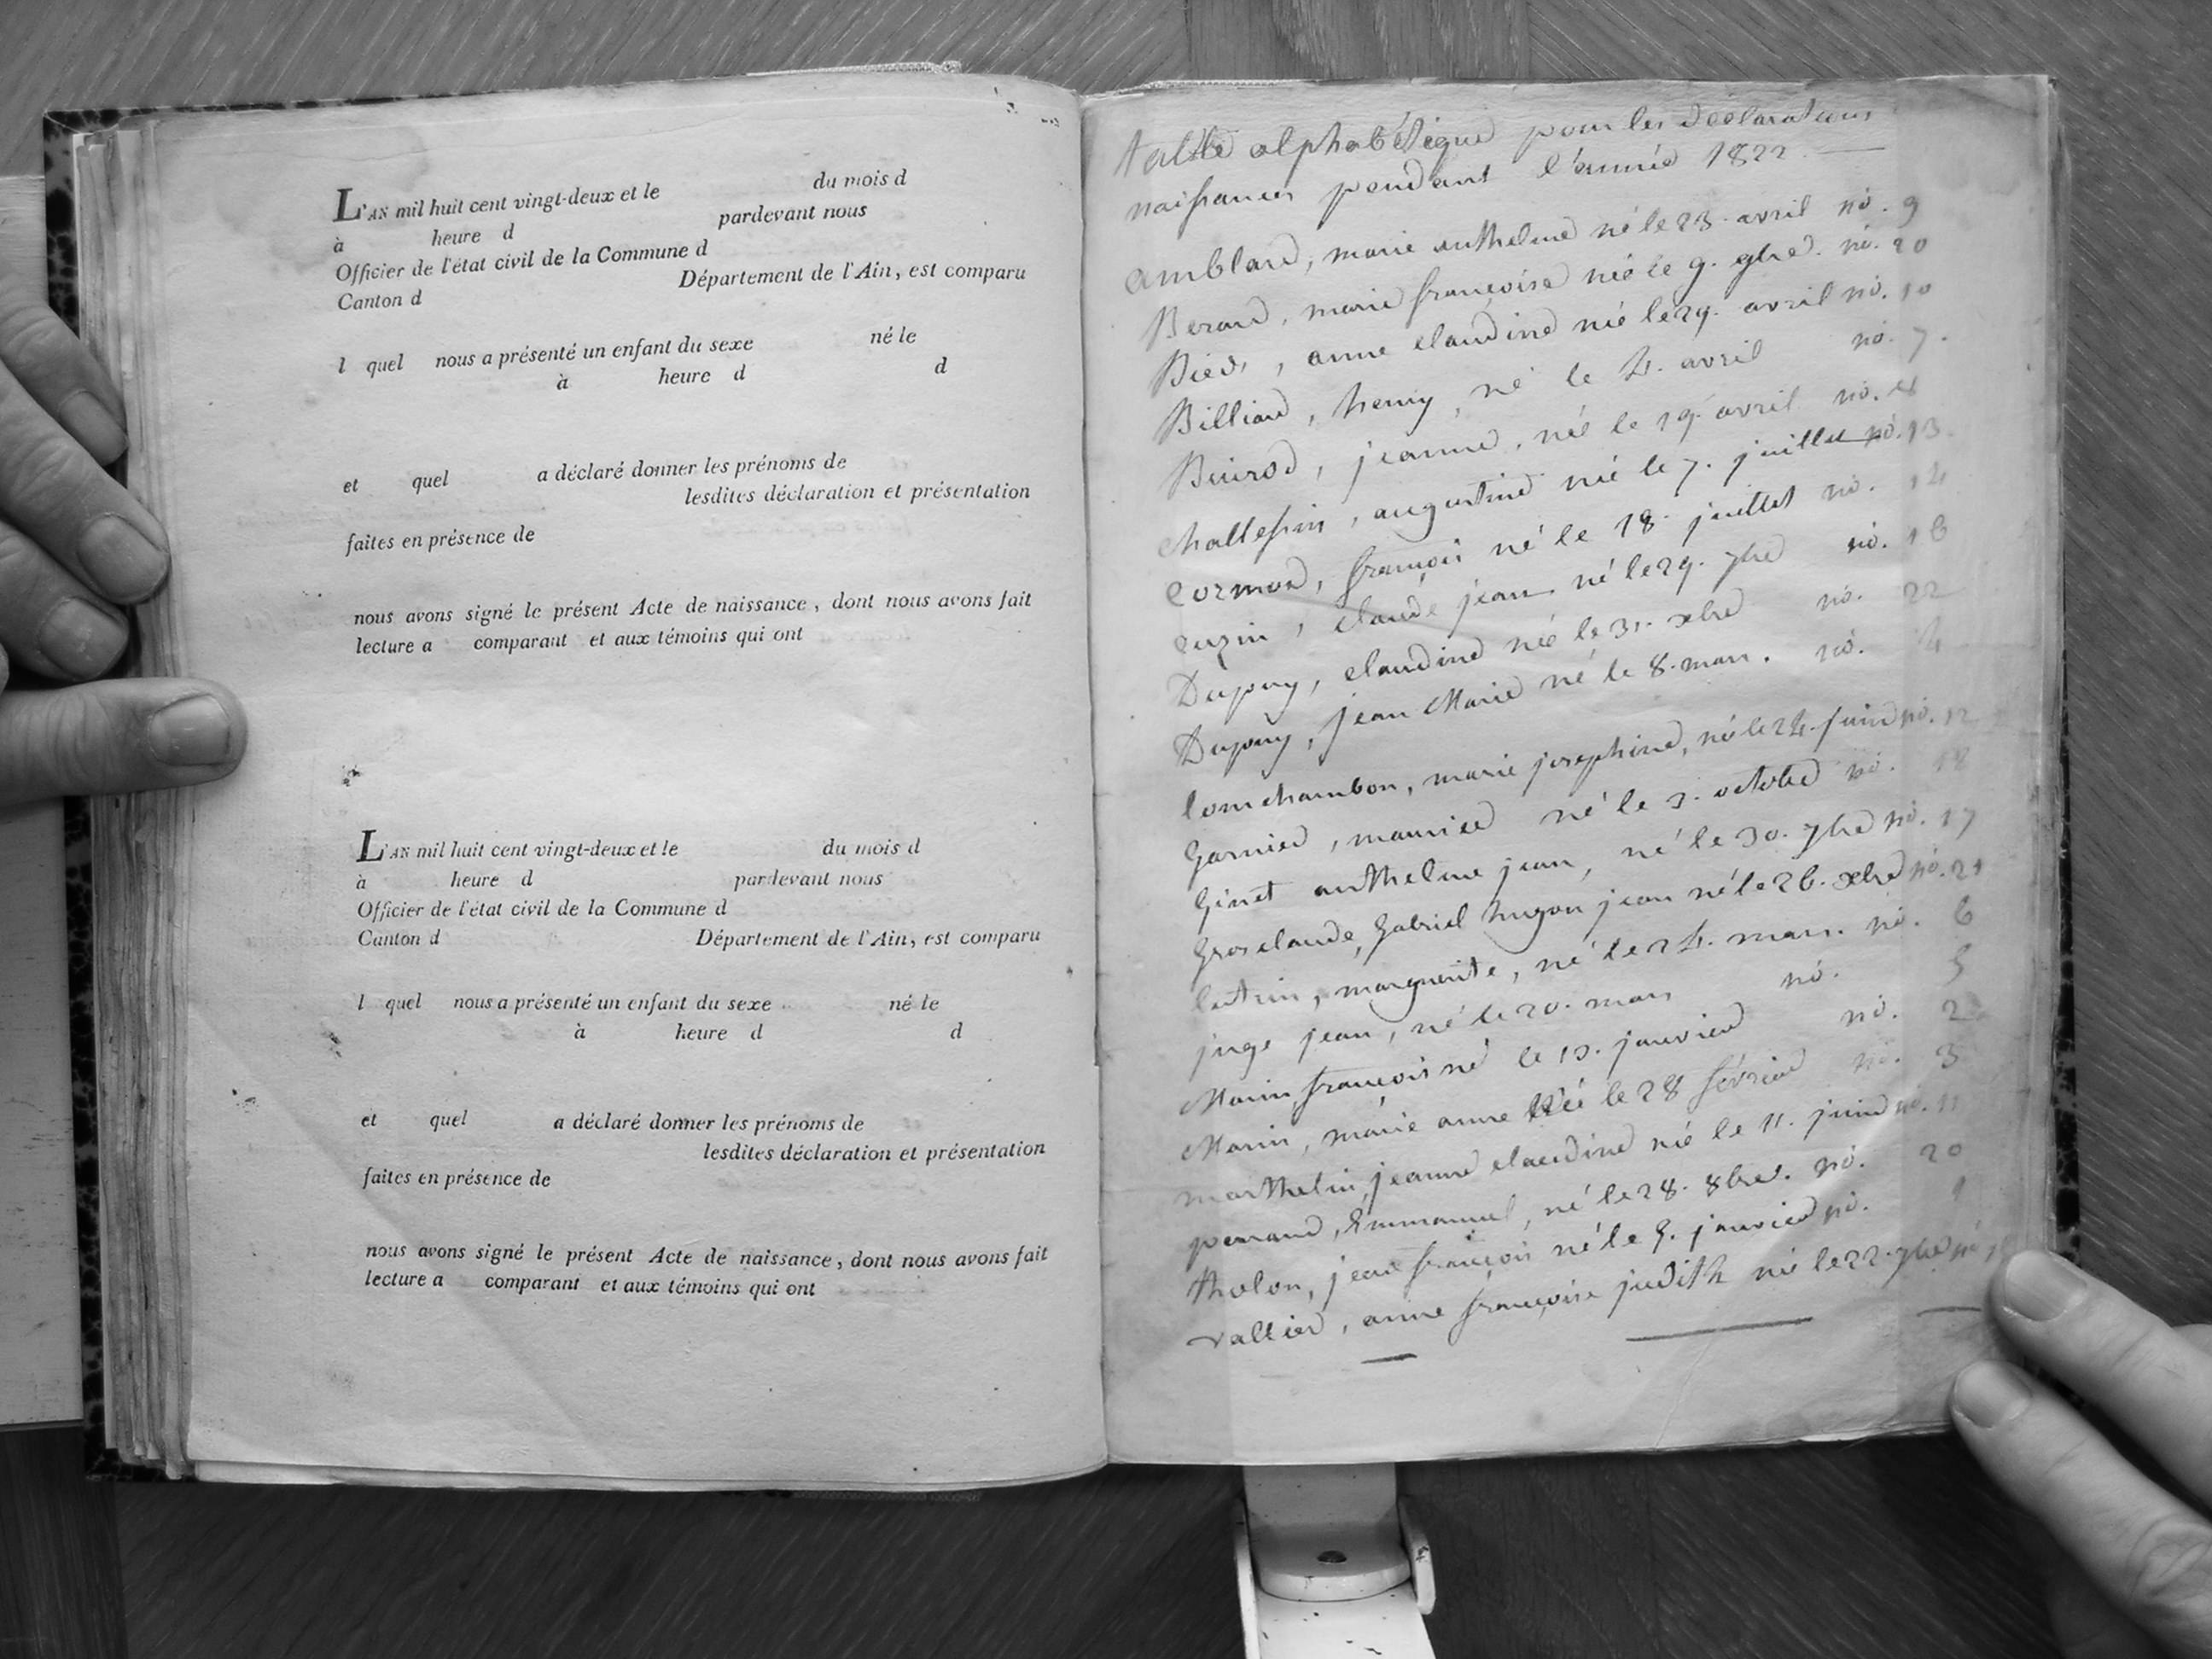 L'AN mil huit cent vingt-deux et le du mois d
à heure d pardevant nous
Officier de l'état civil de la Commune d
Canton d Département de l'Ain, est comparu
l quel nous a présenté un enfant du sexe né le
à heure d d
et quel a déclaré donner les prénoms de
lesdites déclaration et présentation
faites en présence de
nous avons signé le présent Acte de naissance, dont nous avons fait
lecture a comparant et aux témoins qui ont
L'AN mil huit cent vingt-deux et le du mois d
à heure d pardevant nous
Officier de l'état civil de la Commune d
Canton d Département de l'Ain, est comparu
l quel nous a présenté un enfant du sexe né le
à heure d d
et quel a déclaré donner les prénoms de
lesdites déclaration et présentation
faites en présence de
nous avons signé le présent Acte de naissance, dont nous avons fait
lecture a comparant et aux témoins qui ont
table alphabétique pour les Déclarations
naissances pendant l'année 1822
amblard, marie anthelme né le 23. avril no. 9
Berard, marie françoise née le 9. 9bre. no. 20
, anne claudine née le 29. avril no. 10
Billiard, henry, né le 4. avril no. 7.
, jeanne, née le 19. avril no.
challessin, augustine née le 7. juillet no. 13.
cormord, françois né le 18. juillet no. 14
cuzin, claude jean né le 29. 7bre no. 16
Dupuy, claudine née le 31. xbre no. 22
Dupuy, jean Marie né le 8. mars. no. 4
, marie josephine, née le 24. juin no. 12
Garnier, maurice né le 3. octobre no. 18
Ginet anthelme jean, né le 30. 7bre no. 17
Grosclaude, Gabriel hugon jean né le 26. xbre no. 21
, marguerite, né le 24. mars. no. 6
juge jean, né le 20. mars no. 5
Marin françois né le 13. janvier no. 2
Marin, marie anne née le 28 février no. 3
marthelin, jeanne claudine née le 11. juin no. 11
perrand, Emmanuel, né le 28. 8bre. no. 20
tholon, jean françois né le 5. janvier no. 1
vallier, anne françoise judith née le 22. 7bre no